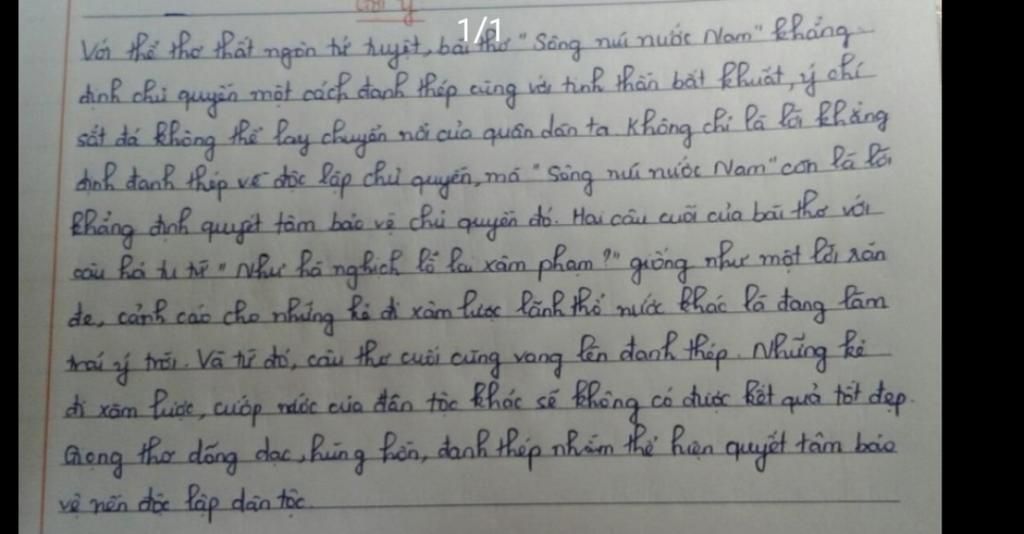 Gợi ý
1/1
Với thể thơ thất ngôn tứ tuyệt, bài thơ "Sông núi nước Nam" khẳng
định chủ quyền một cách đanh thép cùng với tinh thần bất khuất, ý chí
sắt đá không thể lay chuyển nổi của quân dân ta. Không chỉ là lời khẳng
định đanh thép về độc lập chủ quyền, mà "Sông núi nước Nam" còn là lời
khẳng định quyết tâm bảo vệ chủ quyền đó. Hai câu cuối của bài thơ với
câu hỏi tu từ "Như hà nghịch lỗ lai xâm phạm?" giống như một lời răn
đe, cảnh cáo cho những kẻ đi xâm lược lãnh thổ nước khác là đang làm
trái ý trời. Và từ đó, câu thơ cuối cùng vang lên đanh thép. Những kẻ
đi xâm lược, cướp nước của dân tộc khác sẽ không có được kết quả tốt đẹp.
Giọng thơ dõng dạc, hùng hồn, đanh thép nhằm thể hiện quyết tâm bảo
vệ nền độc lập dân tộc.